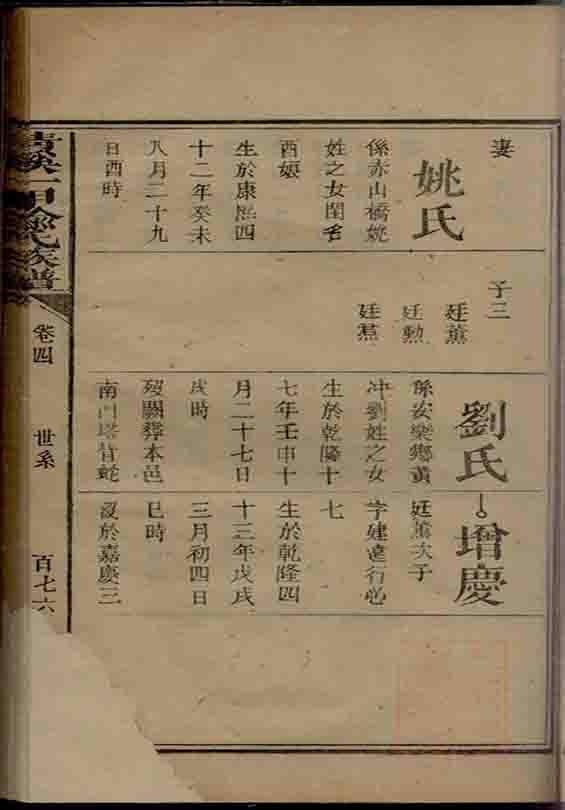 妻
姚氏
係赤山橋姚
姓之女閨名
酉娘
生於康熈四
十二年癸未
八月二十九
日酉時
子三
廷薰
廷勲
廷焄
劉氏
係安樂鄉黄
冲劉姓之女
生於乾隆十
七年壬申十
月二十七日
戌時
歿關葬本邑
南門塔背蛇
增慶
廷薰次子
字建遠行
七
生於乾隆四
十三年戊戌
三月初四日
巳時
歿於嘉慶三
氏族譜
卷四
世系
百七六